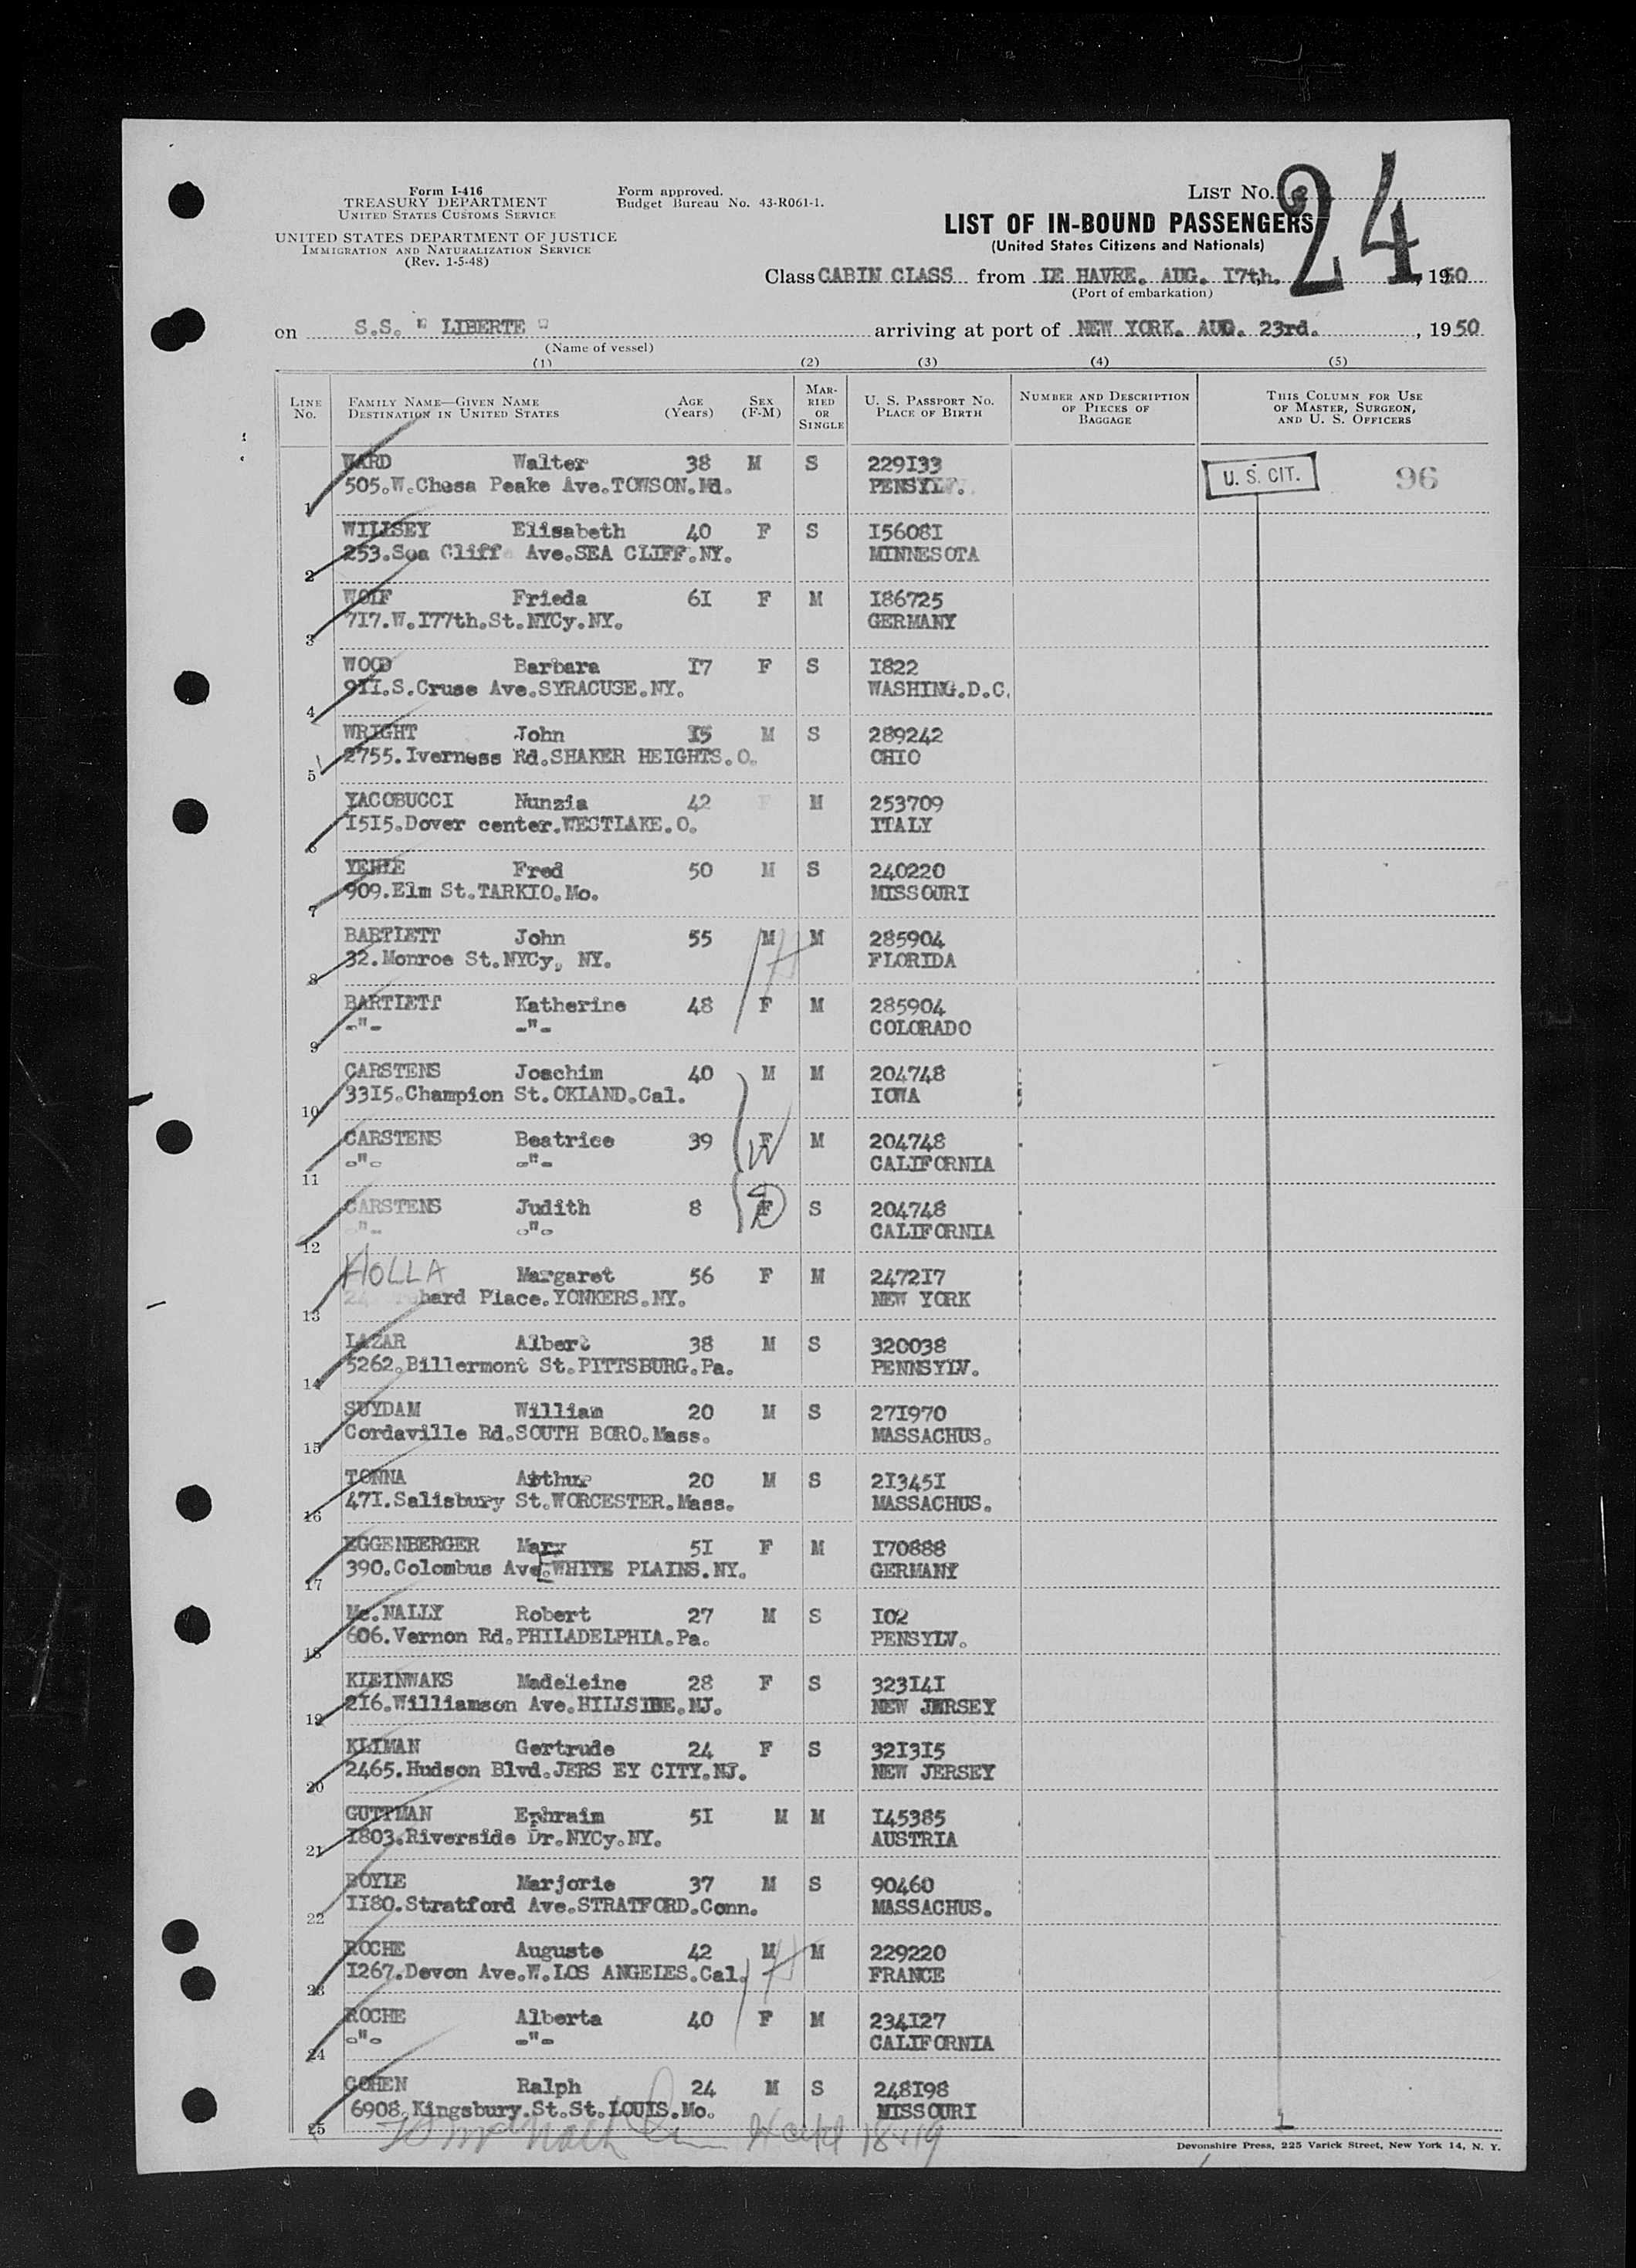 Form I-416
TREASURY DEPARTMENT
UNITED STATES CUSTOMS SERVICE
UNITED STATES DEPARTMENT OF JUSTICE
IMMIGRATION AND NATURALIZATION SERVICE
(Rev. 1-5-48)
Form approved.
Budget Bureau No. 43-R061-1.
LIST NO. 24
LIST OF IN-BOUND PASSENGERS
(United States Citizens and Nationals)
Class CABIN CLASS from LE HAVRE. AUG. I7th. , 1950
(Port of embarkation)
on S.S. " LIBERTE " arriving at port of NEW YORK. AUG. 23rd. , 1950
(Name of vessel)
(1) (2) (3) (4) (5)
LINE No. FAMILY NAME—GIVEN NAME DESTINATION IN UNITED STATES AGE (Years) SEX (F-M) MARRIED OR SINGLE U. S. PASSPORT NO. PLACE OF BIRTH NUMBER AND DESCRIPTION OF PIECES OF BAGGAGE THIS COLUMN FOR USE OF MASTER, SURGEON, AND U. S. OFFICERS
WARD Walter 38 M S 229I33 U. S. CIT. 96
1 505.W.Chesa Peake Ave.TOWSON.Md. PENSYLV.
WILLSEY Elisabeth 40 F S I5608I
2 253.Sea Cliff Ave.SEA CLIFF.NY. MINNESOTA
WOLF Frieda 6I F M I86725
3 7I7.W.I77th.St.NYCy.NY. GERMANY
WOOD Barbara I7 F S I822
4 9II.S.Cruse Ave.SYRACUSE.NY. WASHING.D.C.
WRIGHT John I5 M S 289242
5 2755.Iverness Rd.SHAKER HEIGHTS.O. OHIO
YACOBUCCI Nunzia 42 F M 253709
6 I5I5.Dover center.WESTLAKE.O. ITALY
YEHLE Fred 50 M S 240220
7 909.Elm St.TARKIO.Mo. MISSOURI
BARTLETT John 55 M M 285904
8 32.Monroe St.NYCy, NY. FLORIDA
BARTLETT Katherine 48 F M 285904
9 -"- -"- COLORADO
CARSTENS Joachim 40 M M 204748
10 33I5.Champion St.OKLAND.Cal. IOWA
CARSTENS Beatrice 39 F M 204748
11 -"- -"- CALIFORNIA
CARSTENS Judith 8 F S 204748
12 -"- -"- CALIFORNIA
HOLLA Margaret 56 F M 2472I7
13 hard Place.YONKERS.NY. NEW YORK
LAZAR Albert 38 M S 320038
14 5262.Billermont St.PITTSBURG.Pa. PENNSYLV.
SUYDAM William 20 M S 27I970
15 Cordaville Rd.SOUTH BORO.Mass. MASSACHUS.
TONNA Arthur 20 M S 2I345I
16 47I.Salisbury St.WORCESTER.Mass. MASSACHUS.
EGGENBERGER Mary 5I F M I70888
17 390.Colombus Ave.WHITE PLAINS.NY. GERMANY
Mc.NALLY Robert 27 M S I02
18 606.Vernon Rd.PHILADELPHIA.Pa. PENSYLV.
KLEINWAKS Madeleine 28 F S 323I4I
19 2I6.Williamson Ave.HILLSIDE.NJ. NEW JERSEY
KLIMAN Gertrude 24 F S 32I3I5
20 2465.Hudson Blvd.JERS EY CITY.NJ. NEW JERSEY
GUTTMAN Ephraim 5I M M I45385
21 I803.Riverside Dr.NYCy.NY. AUSTRIA
BOYLE Marjorie 37 M S 90460
22 II80.Stratford Ave.STRATFORD.Conn. MASSACHUS.
ROCHE Auguste 42 M M 229220
23 I267.Devon Ave.W.LOS ANGELES.Cal. FRANCE
ROCHE Alberta 40 F M 234I27
24 -"- -"- CALIFORNIA
COHEN Ralph 24 M S 248I98
25 6908.Kingsbury.St.St.LOUIS.Mo. MISSOURI
Devonshire Press, 225 Varick Street, New York 14, N. Y.